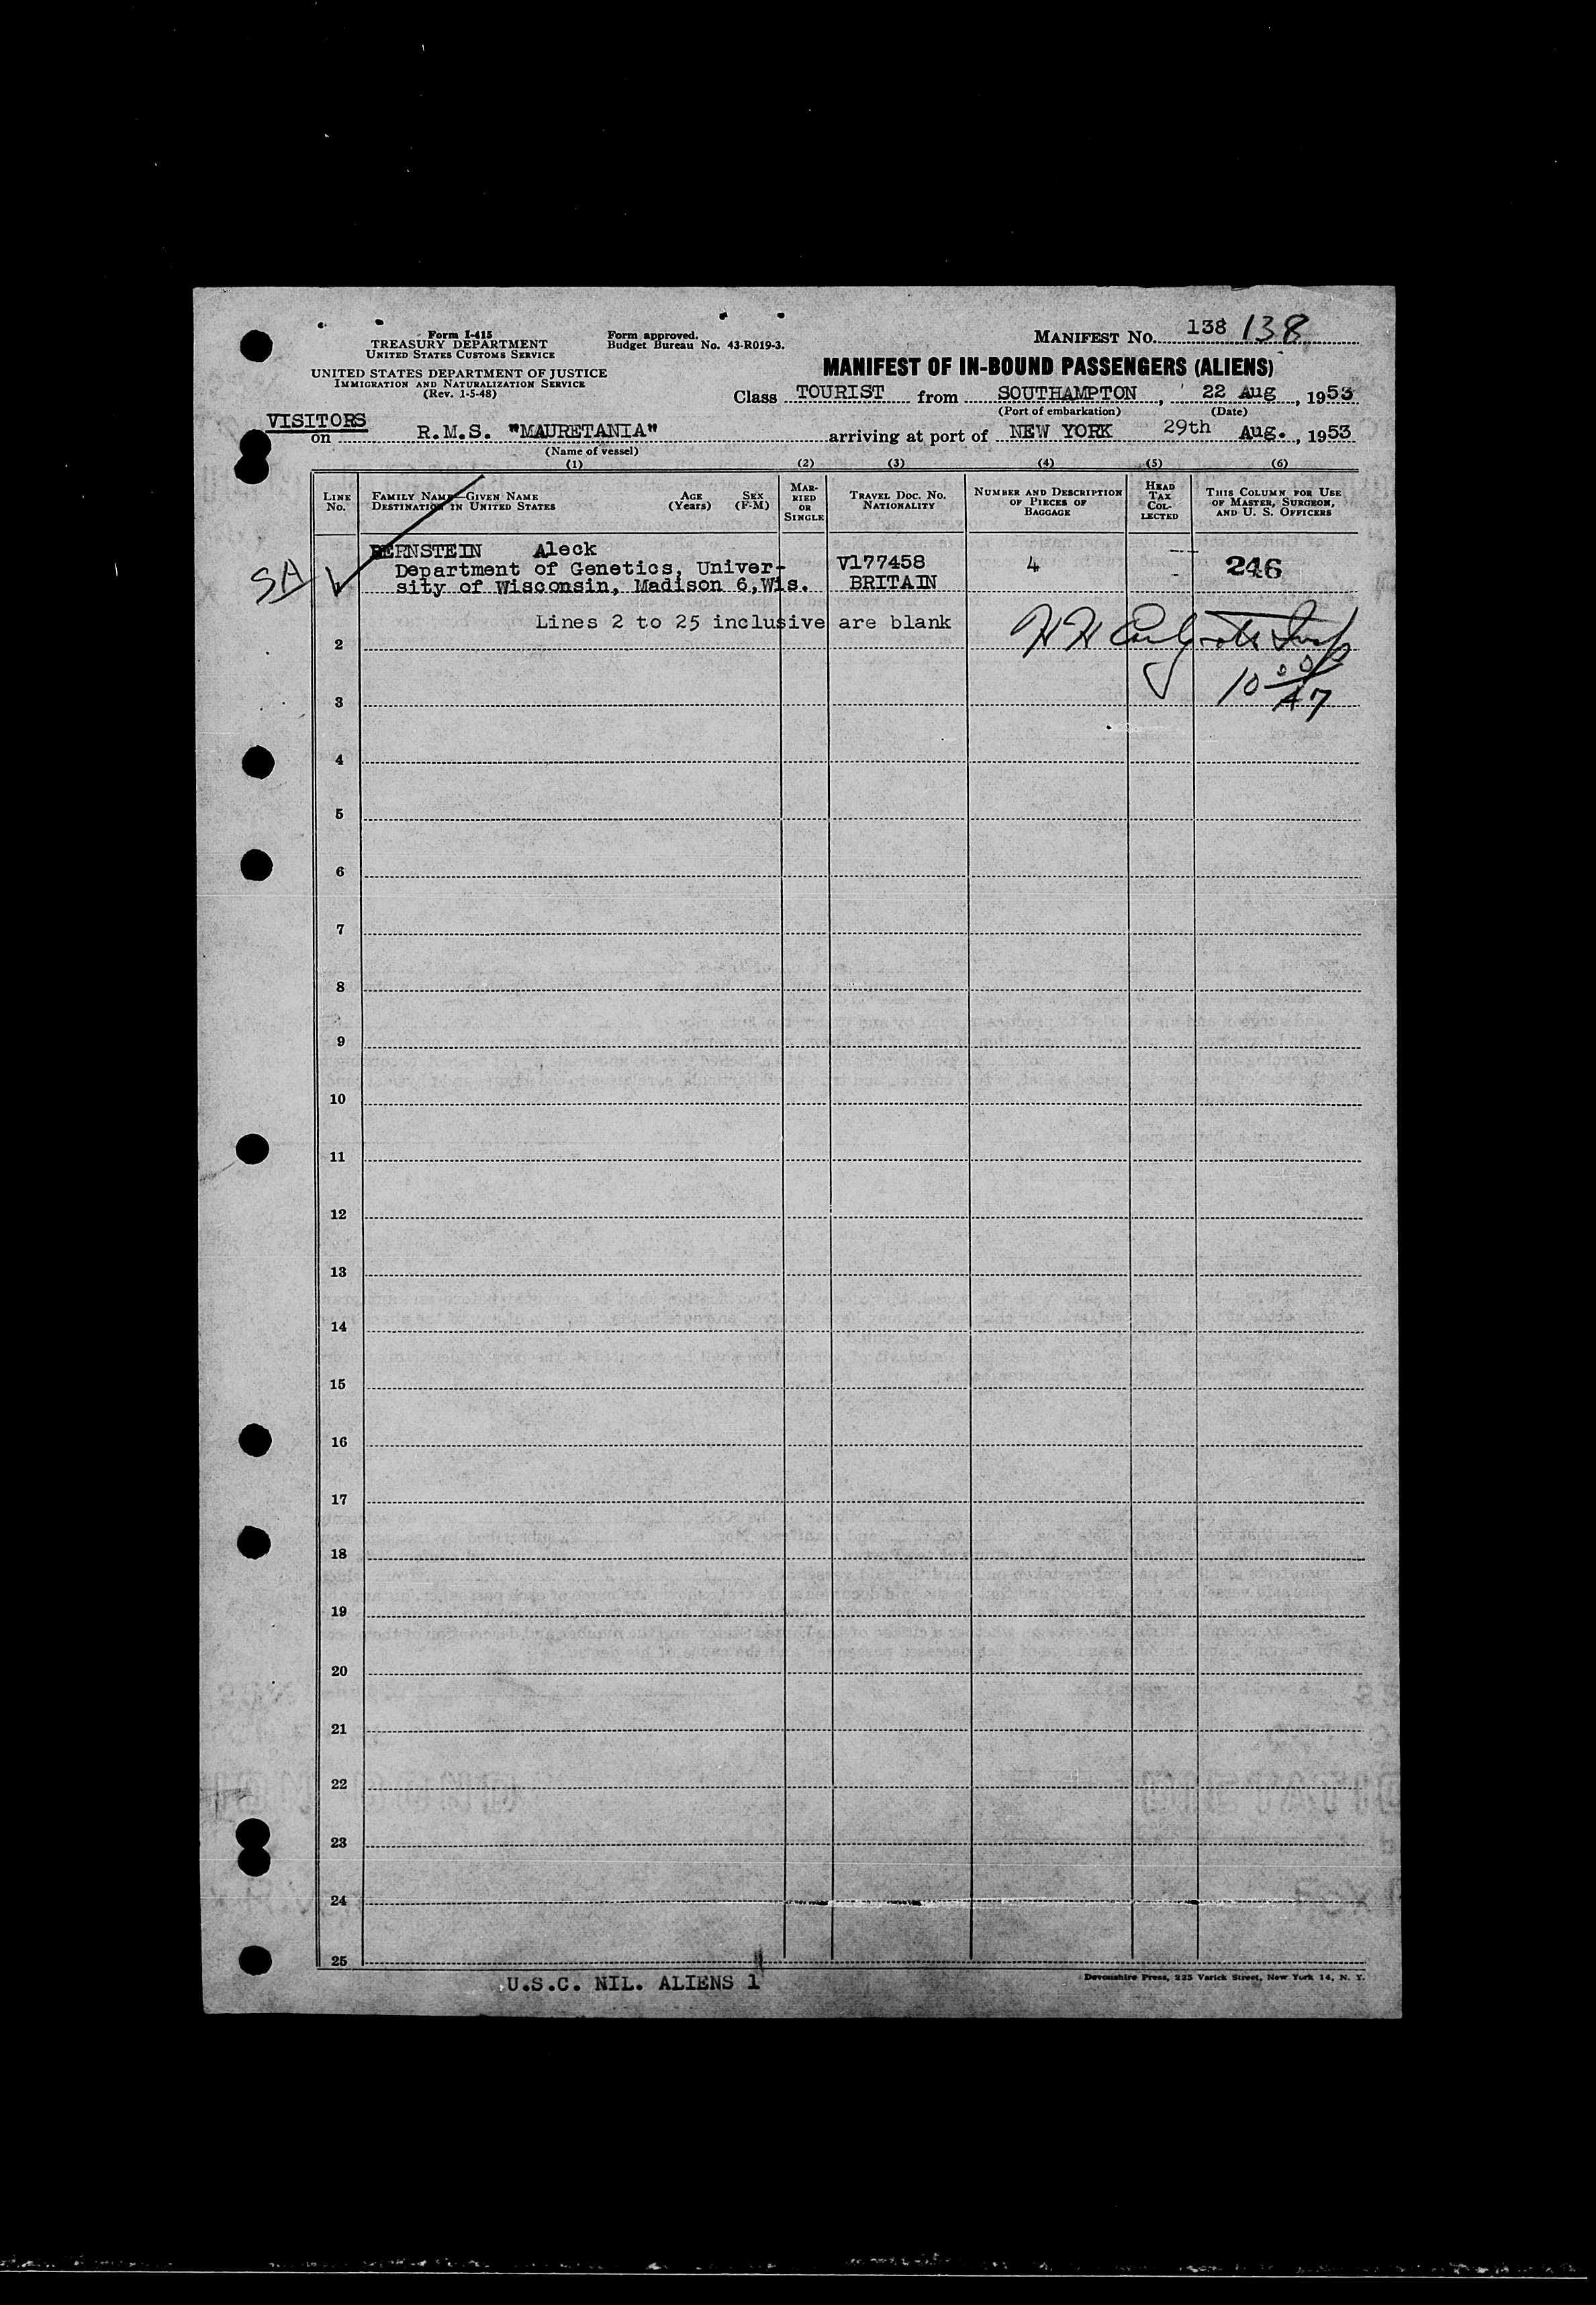 Form I-415
TREASURY DEPARTMENT
UNITED STATES CUSTOMS SERVICE
UNITED STATES DEPARTMENT OF JUSTICE
IMMIGRATION AND NATURALIZATION SERVICE
(Rev. 1-5-48)
Form approved.
Budget Bureau No. 43-R019-3.
MANIFEST No. 138 138
MANIFEST OF IN-BOUND PASSENGERS (ALIENS)
Class TOURIST from SOUTHAMPTON, 22 Aug, 1953
(Port of embarkation) (Date)
VISITORS
on R.M.S. "MAURETANIA" arriving at port of NEW YORK 29th Aug., 1953
(Name of vessel)
(1) (2) (3) (4) (5) (6)
LINE No. FAMILY NAME—GIVEN NAME DESTINATION IN UNITED STATES AGE (Years) SEX (F-M) MARRIED OR SINGLE TRAVEL DOC. No. NATIONALITY NUMBER AND DESCRIPTION OF PIECES OF BAGGAGE HEAD TAX COLLECTED THIS COLUMN FOR USE OF MASTER, SURGEON, AND U. S. OFFICERS
BERNSTEIN Aleck
SA Department of Genetics, Univer- V177458 4 - 246
sity of Wisconsin, Madison 6, Wis. BRITAIN -
Lines 2 to 25 inclusive are blank
2
3
4
5
6
7
8
9
10
11
12
13
14
15
16
17
18
19
20
21
22
23
24
25
U.S.C. NIL. ALIENS 1
Devonshire Press, 225 Varick Street, New York 14, N. Y.